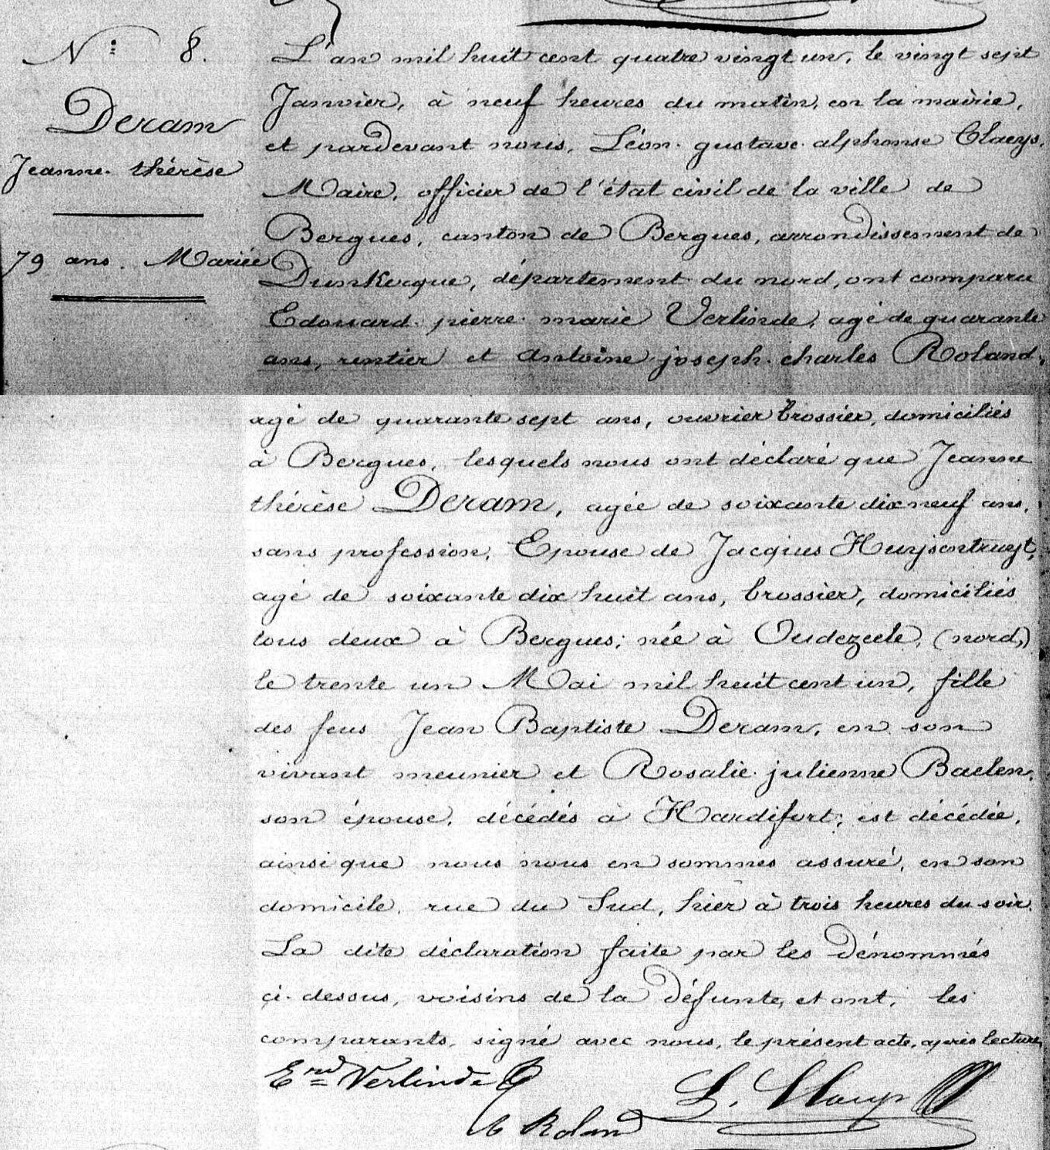 N° 8.
Deram
Jeanne thérèse
79 ans. Mariée
L'an mil huit cent quatre vingt un, le vingt sept
Janvier, à neuf heures du matin, en la mairie,
et pardevant nous, Léon gustave alphonse Claeys,
Maire, officier de l'état civil de la ville de
Bergues, canton de Bergues, arrondissement de
Dunkerque, département du nord, ont comparu
Edouard pierre marie Verlinde, agé de quarante
ans, rentier et Antoine joseph charles Roland,
agé de quarante sept ans, ouvrier brossier, domiciliés
à Bergues, lesquels nous ont déclaré que Jeanne
thérèse Deram, agée de soixante dix neuf ans,
sans profession, Epouse de Jacques Huyssentruyt,
agé de soixante dix huit ans, brossier, domiciliés
tous deux à Bergues; née à Oudezeele, (nord,)
le trente un Mai mil huit cent un, fille
des feus Jean Baptiste Deram, en son
vivant meunier et Rosalie julienne Baelen,
son épouse, décédés à Hardifort; est décédée,
ainsi que nous nous en sommes assuré, en son
domicile, rue du Sud, hier à trois heures du soir.
La dite déclaration faite par les dénommés
çi-dessus, voisins de la défunte, et ont, les
comparants, signé avec nous, le présent acte, après lecture
Erd Verlinde
L. Claeys
Roland